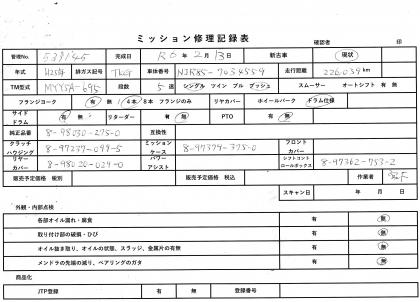 ミッション修理記録表
確認者 印
管理No. 539145 完成日 R6年2月13日 新古車 現状
年式 H25年 排ガス記号 TKG 車体番号 NJR85-7034559 走行距離 226,039km
TM型式 MYY5A-695 段数 5速 シングル ツイン プル プッシュ スムーサー オートシフト 有 無
フランジヨーク 有 無 / 4本 8本 フランジのみ リヤカバー ホイールパーク ドラム仕様
サイドドラム 有 無 リターダー 有 無 PTO 有 無
純正品番 8-98030-275-0 互換性
クラッチハウジング 8-97237-099-5 ミッションケース 8-97379-375-0 フロントカバー
リヤーカバー 8-98020-024-0 パワーアシスト シフトコントロールボックス 8-97362-753-2
販売予定価格 税別 販売予定価格 税込 作業者
スキャン日 年 月 日
外観・内部点検
各部オイル漏れ・腐食 有 無
取り付け部の破損・ひび 有 無
オイル抜き取り、オイルの状態、スラッジ、金属片の有無 有 無
メンドラの先端の減り、ベアリングのガタ 有 無
商品化
JTP登録 有 無 登録番号